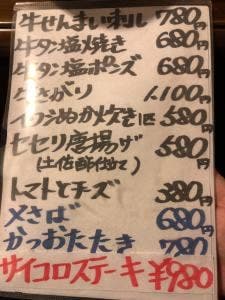 牛せんまい刺し 780円
牛タン塩焼き 680円
牛タン塩ポンズ 680円
牛さがり 1.100円
イワシぬか炊き1匹 580円
セセリ唐揚げ 580円
(土佐酢仕立て)
トマトとチーズ 380円
〆さば 680円
かつおたたき 780円
サイコロステーキ ¥980